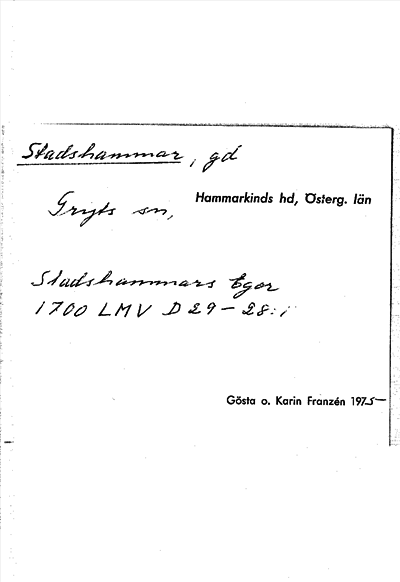 Stadshammar, gd
Gryts sn,
Hammarkinds hd, Österg. län
Stadshammars Egor
1700 LMV D 29-28:1
Gösta o. Karin Franzén 1975